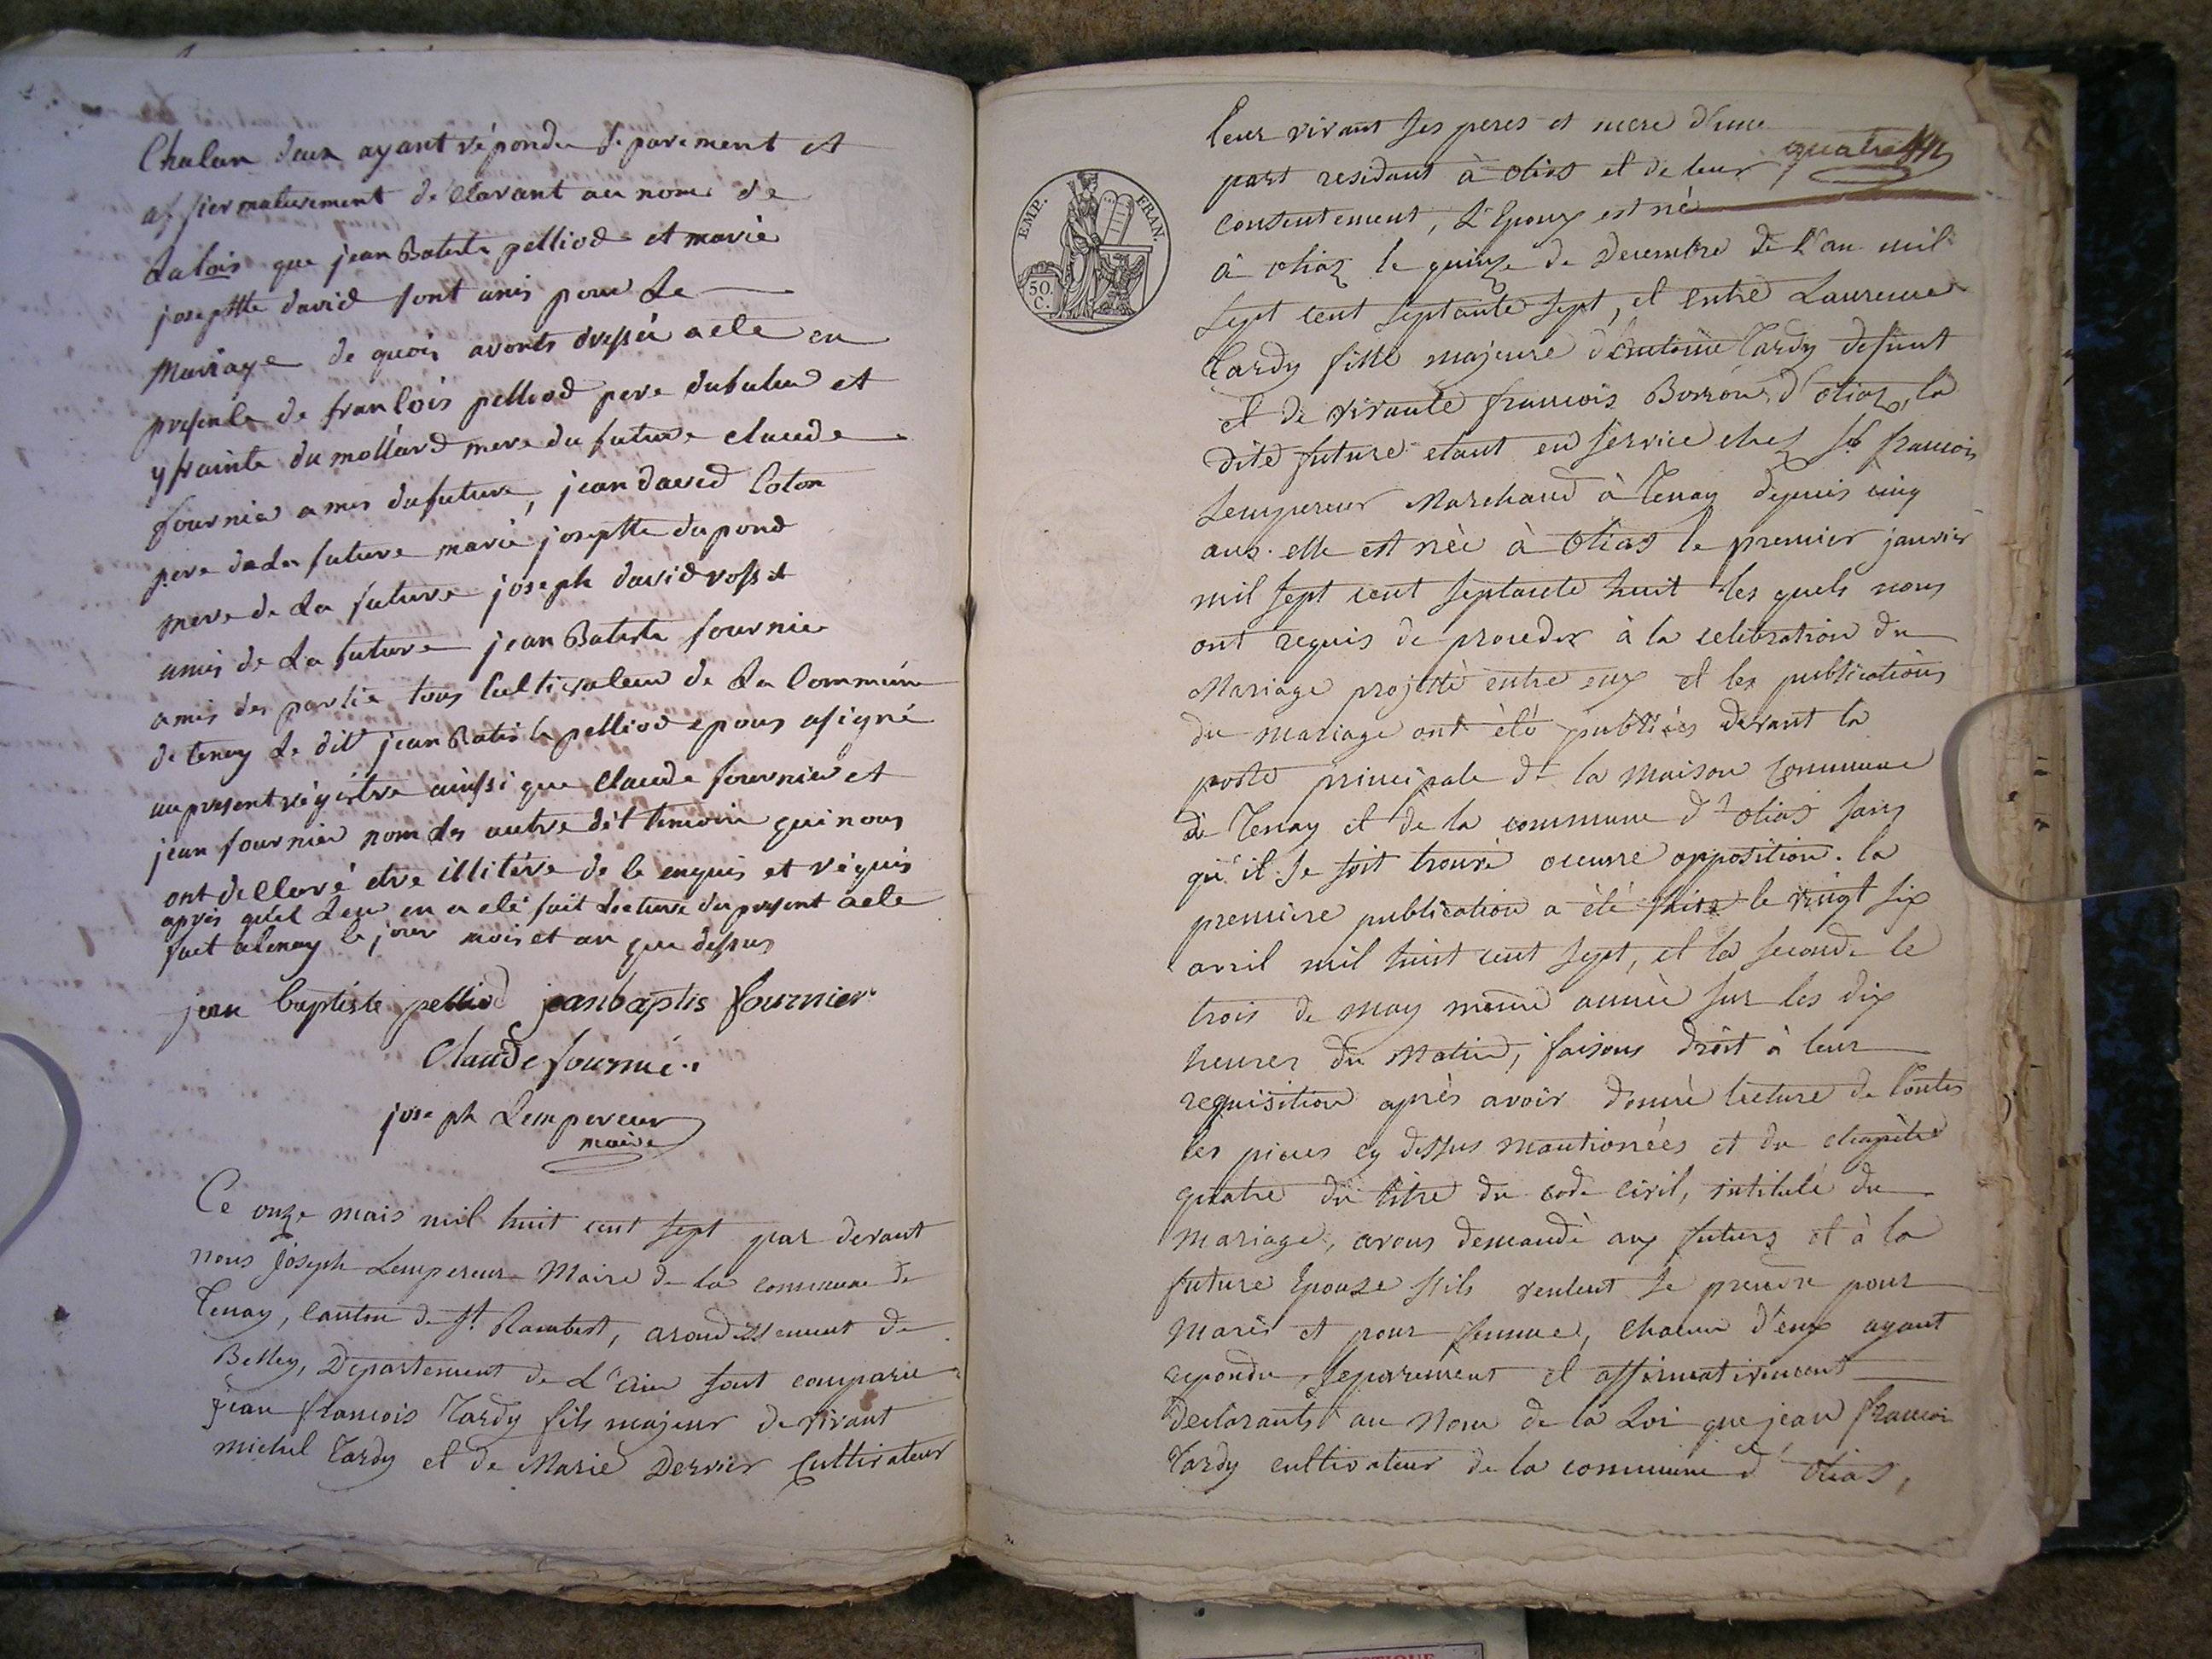 Chalun deux ayant répondu separement et
affiermativement déClarant au nom de
La lois que jean Batiste pelliod et marie
josephtte david sont unis pour Le
Mariage de quois avonts dressée acte en
presente de franlois pelliod pere dufuture et
ysrainte du mollard mere du future claude
fournier amis dufuture, jean david Coton
pere de La future marie josephtte dupond
mere de La future joseph david rosset
amis de La future jean Batiste fournier
amis des partie tous Cultivateur de La Commune
de tenay Le dit jean Batiste pelliod epous asigné
au present régistre ainssi que Claude fournier et
jean fournier nom les autre dit temoin qui nous
ont dellaré etre illitére de le enquis et réquis
après qu'el Leur en a elé fait Lecture du present acte
fait a tenay le jour mois et an que dessus
jean baptiste pelliod jeanbaptis fournier
Claude fournié
joseph Lempereur
maire
Ce onze mais mil huit cent sept par devant
nous Joseph Lempereur Maire de la commune de
Tenay, canton de St Rambert, arondissement de
Belley, Departement de L'ain sont comparu
jean francois Tardy fils majeur de vivant
michel Tardy et de Marie Dervier Cultivateur
EMP. FRAN.
50. C.
quatre
leur vivant ses peres et mere d'une
part residant à Oliaz et de leur
consentement, L'Epoux est né
à oliaz le quinze de Decembre de l'an mil
sept cent septante sept, et entre Laurence
Tardy fille majeure d'Antoine Tardy defunt
et de vivante francois Borron d'oliaz, la
dite future etant en service chez Sr francois
Lempereur Marchand à Tenay depuis cinq
ans. elle est née à Oliaz le premier janvier
mil sept cent septante huit les quels nous
ont requis de proceder à la celebration du
Mariage projetté entre eux et les publications
du mariage ont été publiées devant la
porte principale de la Maison Commune
de Tenay et de la commune d'oliaz sans
qu'il se soit trouvé aucune opposition. la
premiere publication a été faite le vingt six
avril mil huit cent sept, et la seconde le
trois de may meme année sur les dix
heures du Matin, faisons droit à leur
requisition après avoir donné lecture de toutes
les pieces cy dessus mantionées et du chapitre
quatre du titre du code civil, intitulé du
mariage, avons demandé aux futurs et à la
future Epouze s'ils veulent se prendre pour
Maris et pour femme, chacun d'eux ayant
repondu separement et affirmativement
declarants au Nom de la Loi que jean francois
Tardy cultivateur de la commune d'oliaz,